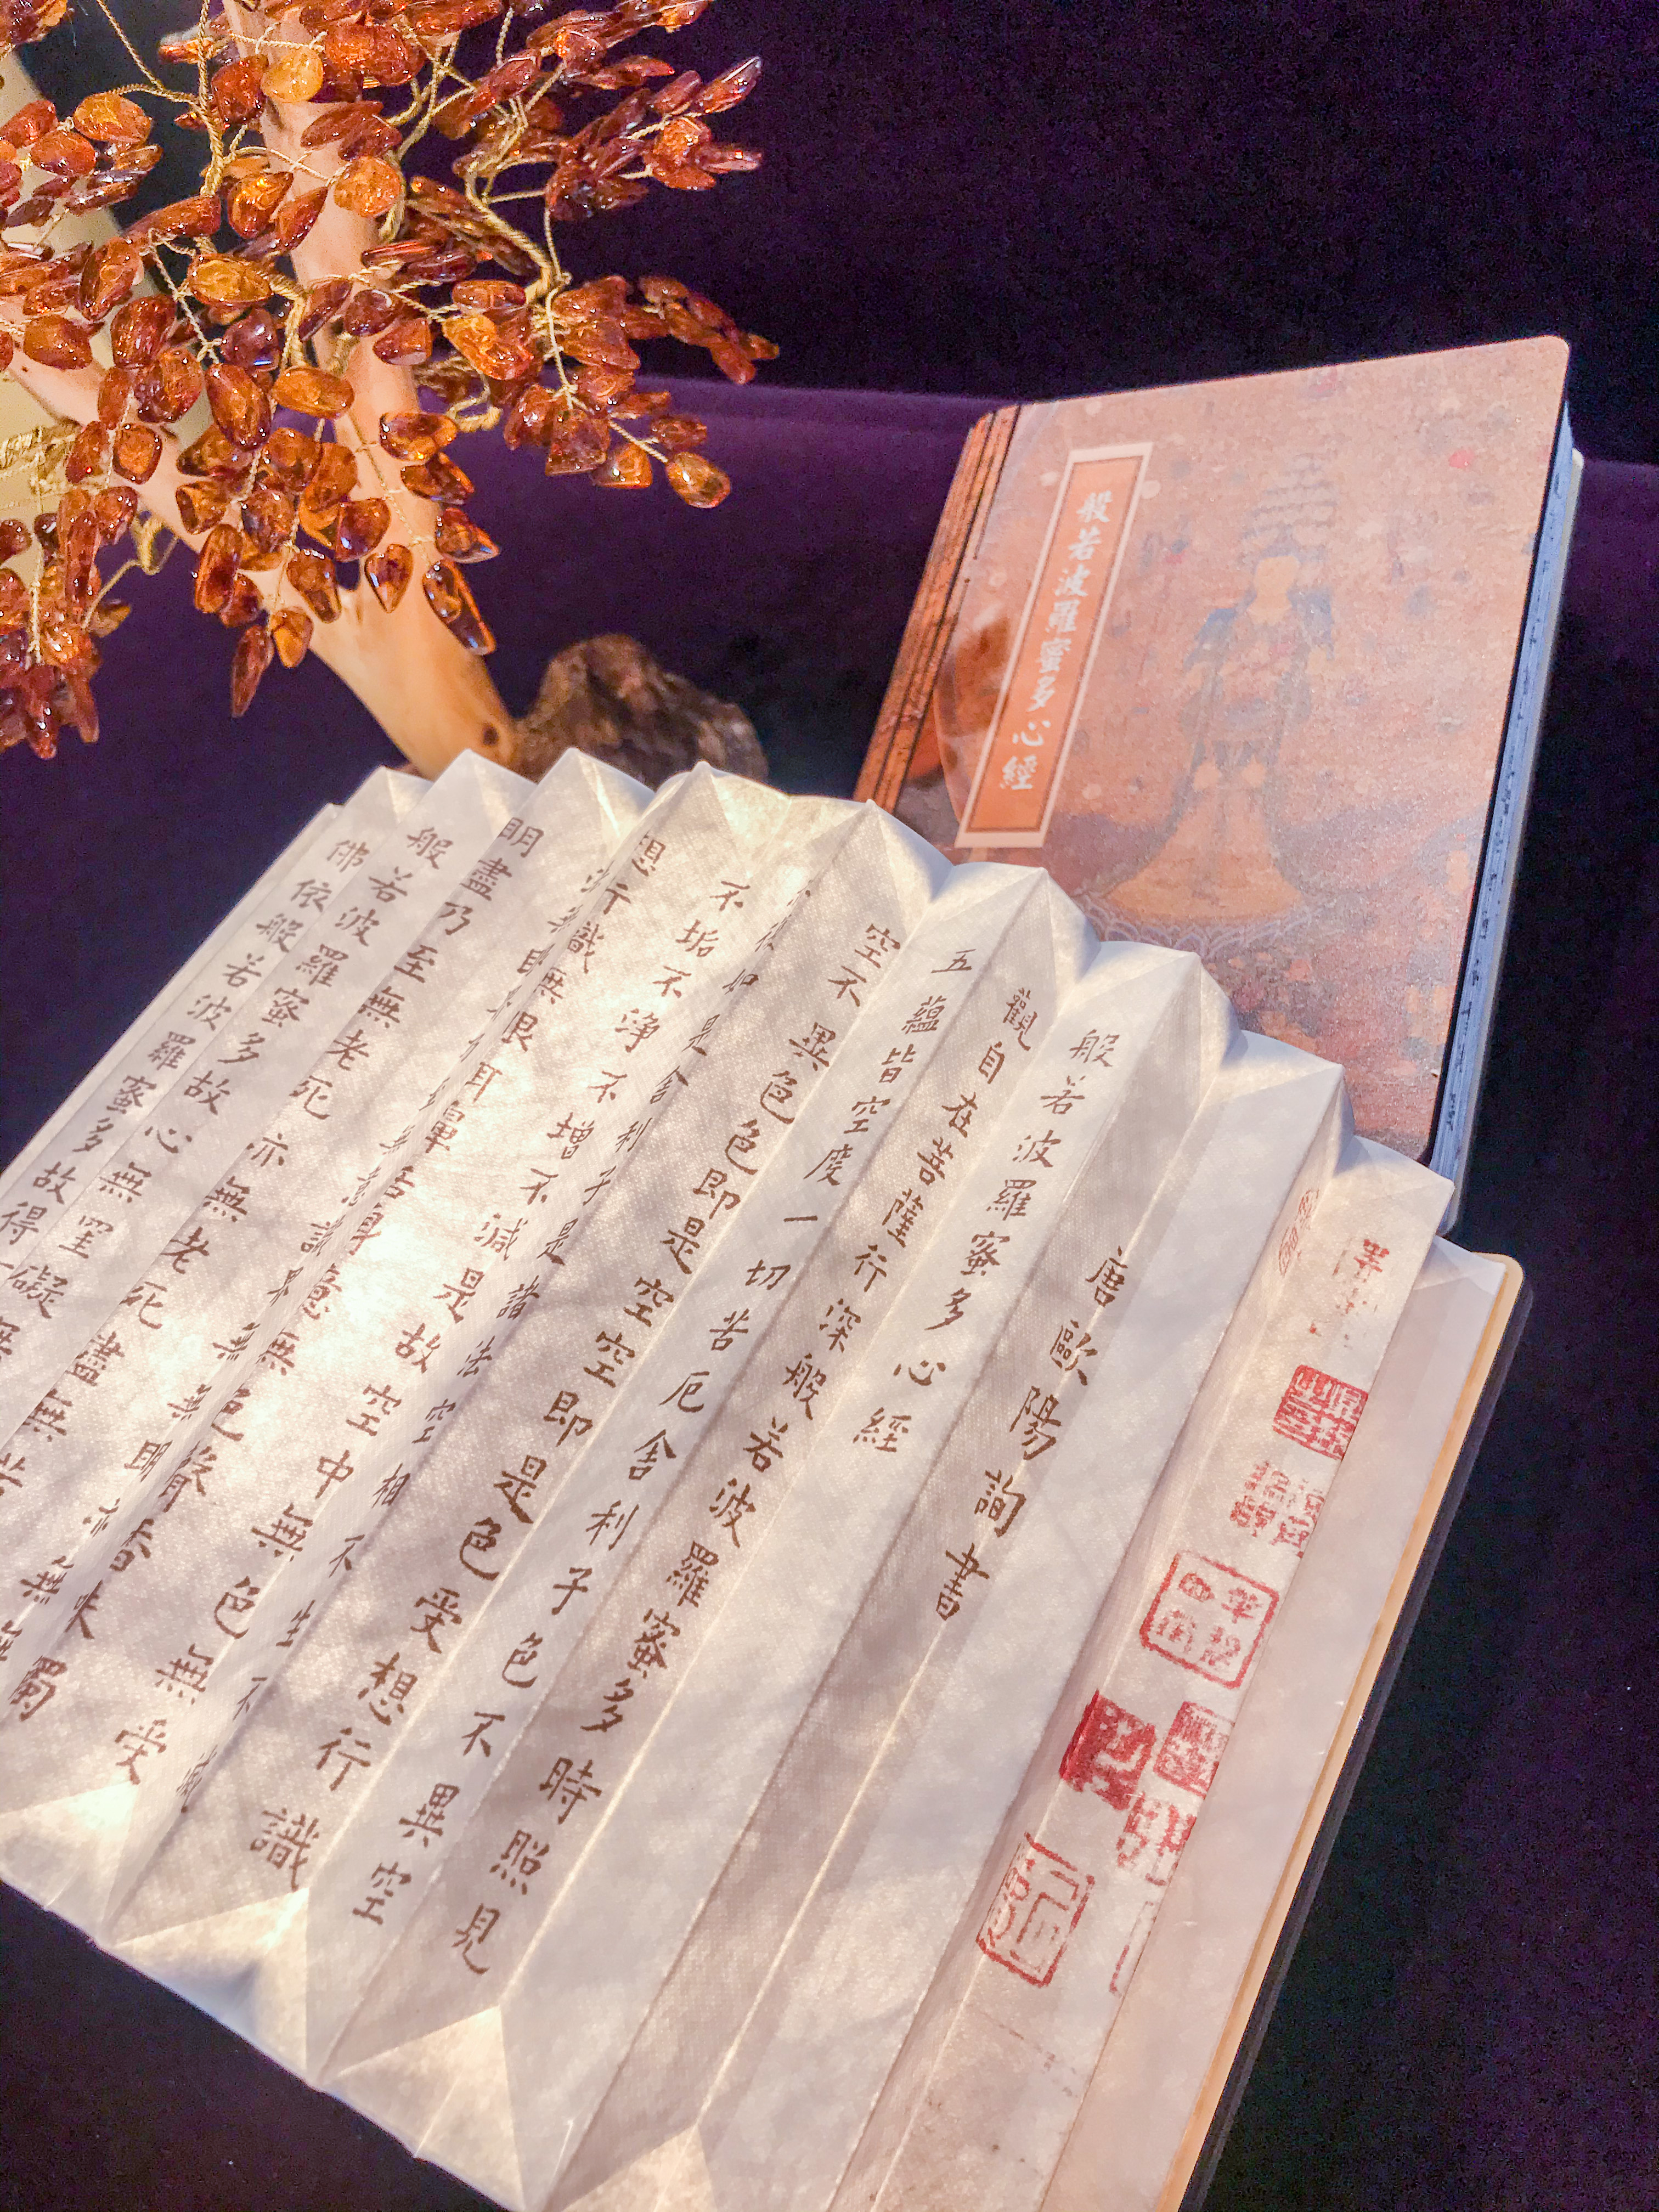 般若波羅蜜多心經
唐歐陽詢書
般若波羅蜜多心經
觀自在菩薩行深般若波羅蜜多時照見
五蘊皆空度一切苦厄舍利子色不異空
空不異色色即是空空即是色受想行識
如是舍利子是諸法空相不生不滅
不垢不淨不增不減是故空中無色無受
想行識無眼耳鼻舌身意無色聲香味觸
無無明亦無
明盡乃至無老死亦無老死盡無苦
般若波羅蜜多故心無罣礙無
佛依般若波羅蜜多故得